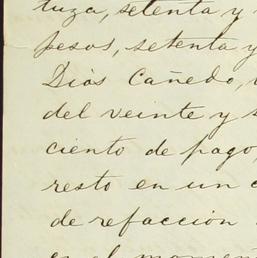 tuza, setenta y
pesos, setenta y
Dios Cañedo,
del veinte y
ciento de pago,
resto en un
de refacción
en el